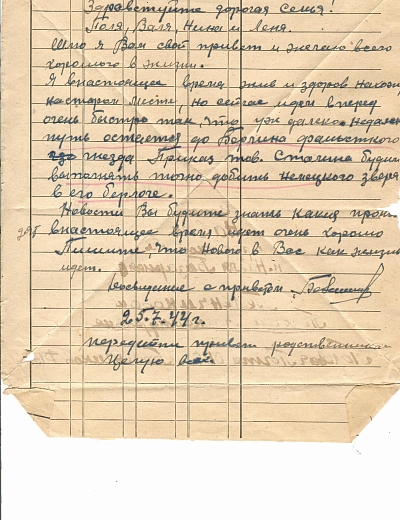 Здравствуйте дорогая семья!
Поля, Валя, Нина и Леня.
Шлю я Вам свой привет и желаю всего
хорошого в жизни.
Я внастоящее время жив и здоров нахожу
на старом месте, но сейчас идем вперед
очень быстро так, что уже далеко недалек
путь остается до Берлина фашисткого
гнезда Приказ тов. Сталина будим
выполнять точно добить немецкого зверя
в его берлоге.
Новости Вы будите знать какия
внастоящее время идет очень хорошо
Пишите, что нового в Вас как жизнь
идет.
Досвидание с приветом
25.7.44 г.
передайти привет родственникам
Целую всех.